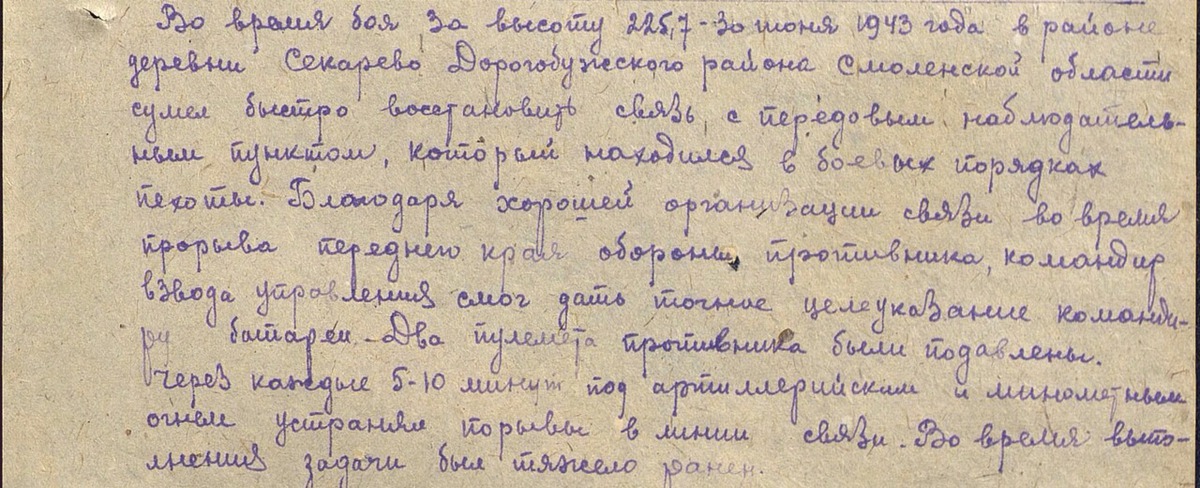 Во время боя за высоту 225,7 - 30 июня 1943 года в районе
деревни Секарево Дорогобужского района Смоленской области
сумел быстро восстановить связь с передовым наблюдатель-
ным пунктом, который находился в боевых порядках
пехоты. Благодаря хорошей организации связи во время
прорыва переднего края обороны, противника, командир
взвода управления смог дать точное целеуказание команди-
ру батареи. Два пулемета противника были подавлены.
Через каждые 5-10 минут под артиллерийским и минометным
огнем устранял порывы в линии связи. Во время выпо-
лнения задачи был тяжело ранен.